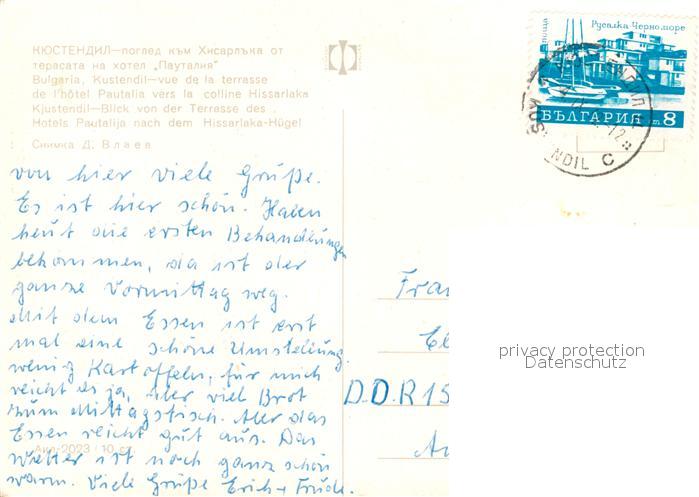 КЮСТЕНДИЛ—поглед към Хисарлъка от
терасата на хотел „Пауталия"
Bulgaria, Kustendil—vue de la terrasse
de l'hôtel Pautalia vers la colline Hissarlaka
Kjustendil—Blick von der Terrasse des
Hotels Pautalija nach dem Hissarlaka-Hügel
Снимка Д. Влаев
Русалка-Черноморе
поща
БЪЛГАРИЯ
8
KUS NDIL C
von hier viele Grüße.
Es ist hier schön. Haben
heut die ersten Behandlungen
bekommen, da ist der
ganze Vormittag weg.
Mit dem Essen ist erst
mal eine schöne Umstellung.
wenig Kartoffeln, für mich
reicht es ja, aber viel Brot
zum Mittagstisch. Aber das
Essen reicht gut aus. Das
Wetter ist noch ganz schön
warm. Viele Grüße Erich + Frieda.
Акл-2023 10 ст.
Frau
D.D.R 15
privacy protection
Datenschutz